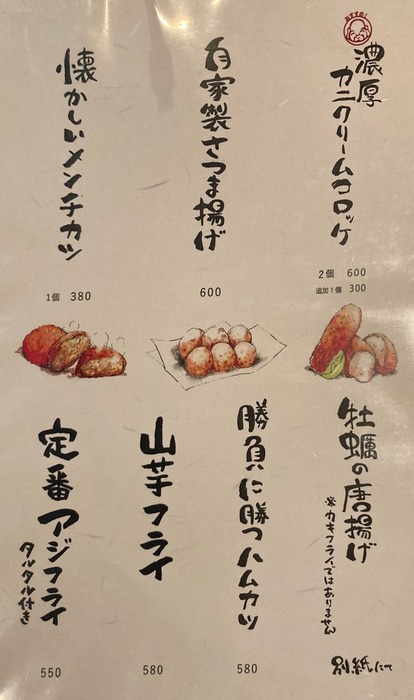 おすすめ!
濃厚
カニクリームコロッケ
2個 600
追加1個 300
自家製さつま揚げ
600
懐かしいメンチカツ
1個 380
牡蠣の唐揚げ
※カキフライではありません
別紙にて
勝負に勝つハムカツ
580
山芋フライ
580
定番アジフライ
タルタル付き
550